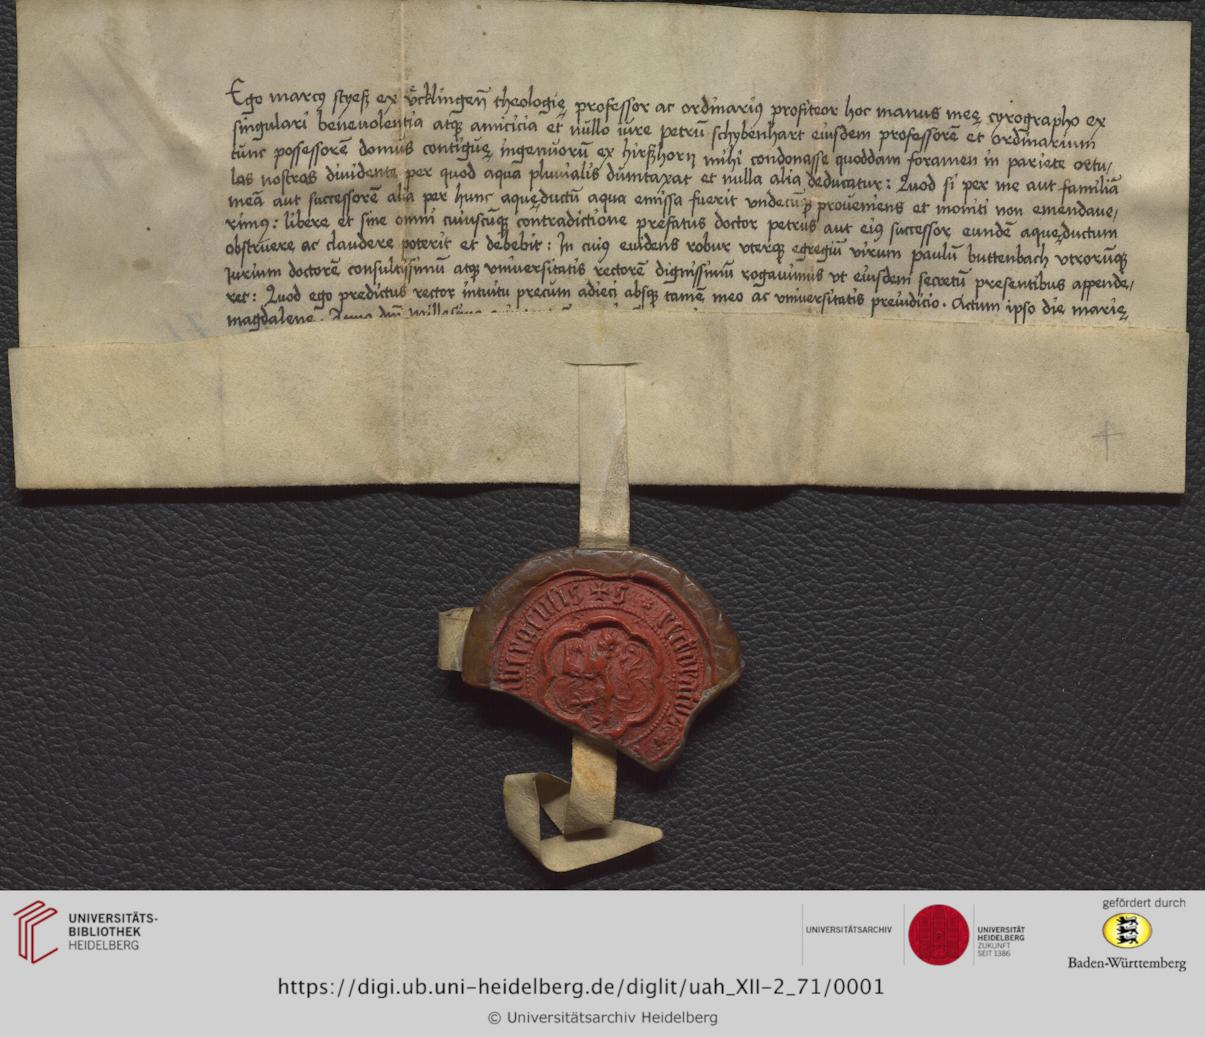 Ego marcꝯ styeß ex v̊cklingeñ theologię professor ac ordinariꝯ profiteor hoc manus meę cyrographo ex
singulari beneuolentia atqꝫ amicicia et nullo iure petrū schybenhart eiusdem professorē et ordinarium
tunc possessorē domus contiguę ingenuorū ex hirßhorn mihi condonasse quoddam foramen in pariete ortu/
las nostras diuidente per quod aqua pluuialis dumtaxat et nulla alia deducatur: Quod si per me aut familiā
meā aut successorē alia per hunc aquęductū aqua emissa fuerit vndecūqꝫ proueniens et moniti non emendaue/
rimꝯ: libere et sine omni cuiuscūqꝫ contradictione prefatus doctor petrus aut eiꝯ successor eundē aquęductum
obstruere ac claudere poterit et debebit: In cuiꝯ euidens robur vterqꝫ egregiū virum paulū buttenbach vtrorūqꝫ
Jurium doctorē consultissimū atqꝫ vniuersitatis rectorē dignissimū rogauimus vt eiusdem secretū presentibus appende/
ret: Quod ego predictus rector intuitu precum adieci absqꝫ tamē meo ac vniuersitatis preiudicio. Actum ipso die marię
magdalene. Anno dn̄i Millesimo
UNIVERSITÄTS-
BIBLIOTHEK
HEIDELBERG
UNIVERSITÄTSARCHIV
UNIVERSITÄT
HEIDELBERG
ZUKUNFT
SEIT 1386
gefördert durch
Baden-Württemberg
https://digi.ub.uni-heidelberg.de/diglit/uah_XII-2_71/0001
© Universitätsarchiv Heidelberg